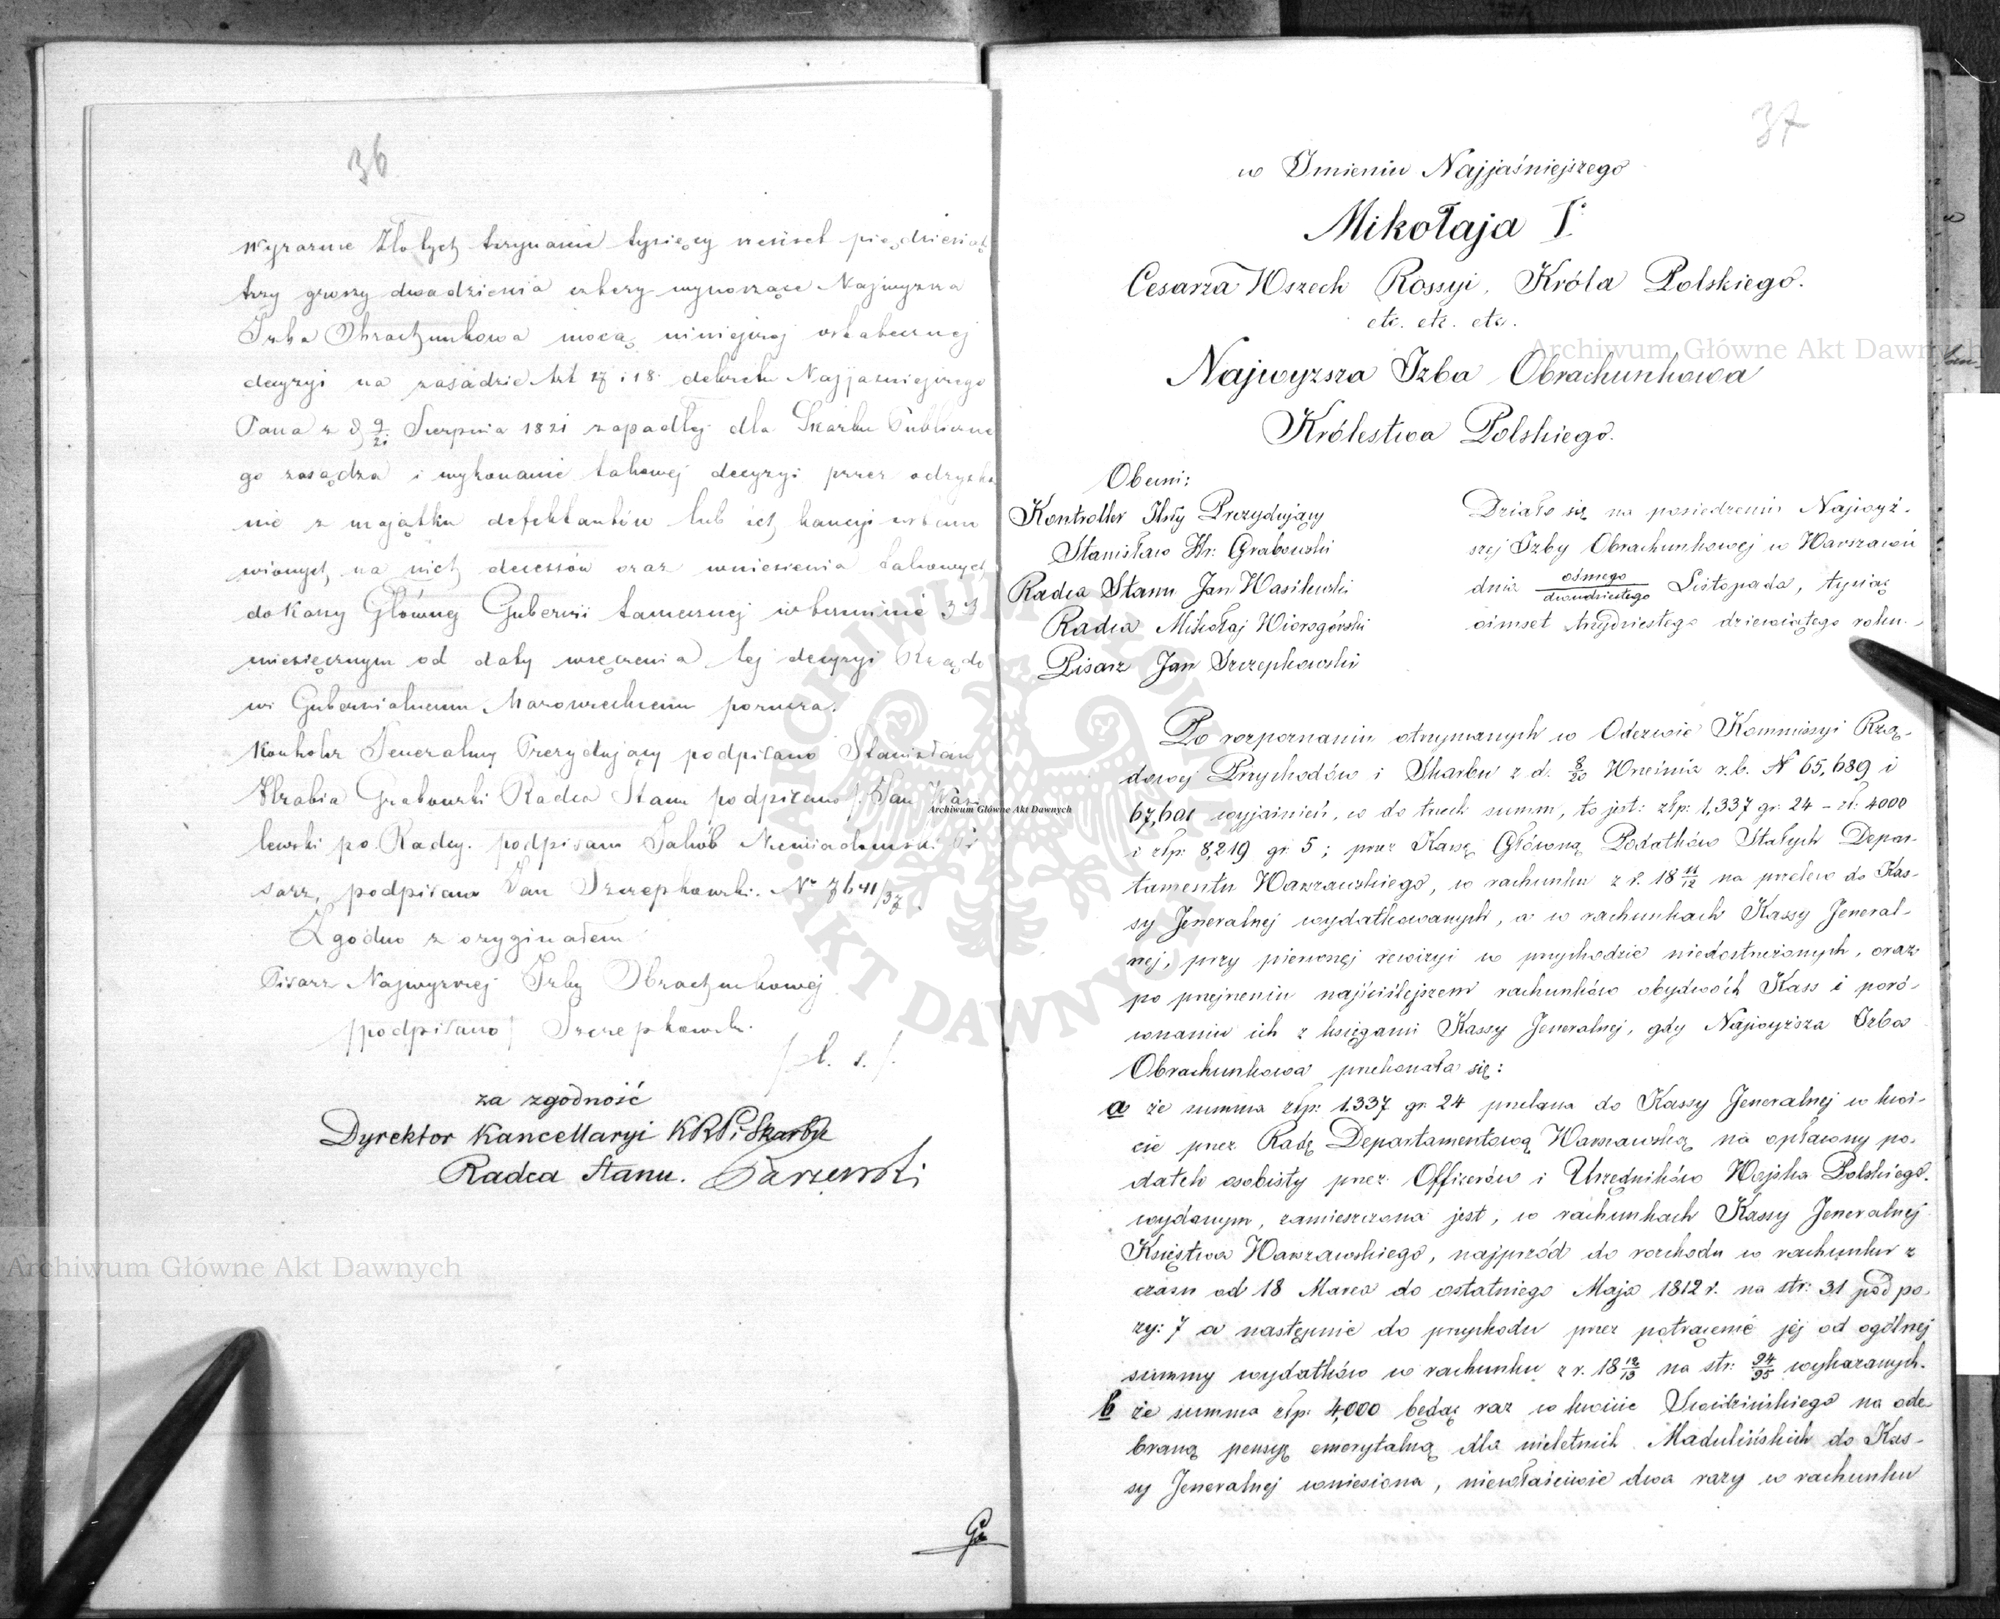 36
wyraznie Złotych trzynaście tysięcy sześćset pięćdziesiąt
trzy groszy dwadzieścia cztery wynoszące Najwyzsza
Izba Obrachunkowa mocą niniejszej ostatecznej
decyzyi na zasadzie Art 17 i 18 dekretu Najjasniejszego
Pana z d 9/21 Sierpnia 1821 zapadłej dla Skarbu Publiczne
go zasądza i wykonanie takowej decyzyi przez odzyska
nie z majątku defektantów lub ich kaucyi ustano
wionych na nich decessów oraz wniesienia takowych
do Kassy Głównej Gubernii tamecznej w terminie 3
miesięcznym od daty wręczenia tej decyzyi Rządo
wi Gubernialnemu Mazowieckiemu porucza.
Kontroler Jeneralny Prezydujący podpisano Stanisław
Hrabia Grabowski Radca Stanu podpisano Jan Wasi
lewski po Radcy podpisano Jakób Niemiadomski Pi
sarz, podpisano Jan Szczepkowski. Nr 7641/37.
Zgodno z oryginałem
Pisarz Najwyzszej Izby Obrachunkowej
/podpisano/ Szczepkowski
/l. s./
za zgodność
Dyrektor Kancellaryi KRPiSkarbu
Radca Stanu.
37
w Imieniu Najjaśniejszego
Mikołaja I.
Cesarza Wszech Rossyi, Króla Polskiego.
etc. etc. etc.
Najwyzsza Izba Obrachunkowa
Królestwa Polskiego.
Obecni:
Kontroller Jlny Prezydujący
Stanisław Hr: Grabowski
Radca Stanu Jan Wasilewski
Radca Mikołaj Wiorogórski
Pisarz Jan Szczepkowski
Działo się na posiedzeniu Najwyż-
szej Izby Obrachunkowej w Warszawie
dnia ósmego/dwudziestego Listopada, tysiąc
ośmset trzydziestego dziewiątego roku.
Po rozpoznaniu otrzymanych w Odezwie Kommissyi Rzą-
dowej Przychodów i Skarbu z d. 8/20 Września r.b. N 65,689 i
67,601 wyjaśnień, co do trzech summ, to jest: złp: 1,337 gr: 24 - zł: 4000
i złp: 8,219 gr 5; przez Kassę Główną Podatków Stałych Depar-
tamentu Warszawskiego, w rachunku z r. 18 11/12 na przelew do Kas-
sy Jeneralnej wydatkowanych, a w rachunkach Kassy Jeneral-
nej, przy pierwszej rewizyi w przychodzie niedostrzeżonych, oraz
po przejrzeniu najściślejszem rachunków obydwóch Kass i poró-
wnaniu ich z księgami Kassy Jeneralnej, gdy Najwyższa Izba
Obrachunkowa przekonała się:
a że summa złp: 1,337 gr 24 przelana do Kassy Jeneralnej w kwi-
cie przez Radę Departamentową Warszawską na opłacony po-
datek osobisty przez Officerów i Urzędników Wojska Polskiego.
wydanym, zamieszczona jest, w rachunkach Kassy Jeneralnej
Księstwa Warszawskiego, najprzód do rozchodu w rachunku z
czasu od 18 Marca do ostatniego Maja 1812 r. na str: 31 pod po-
zy: 7 a następnie do przychodu przez potrącenie jej od ogólnej
summy wydatków w rachunku z r. 18 12/13 na str: 94/95 wykazanych.
b że summa złp: 4,000 będąc raz w kwicie Swidzińskiego na ode-
braną pensyę emerytalną dla nieletnich Madalińskich do Kas-
sy Jeneralnej wniesiona, niewłaściwie dwa razy w rachunku
Archiwum Główne Akt Dawnych
Archiwum Główne Akt Dawnych
Archiwum Główne Akt Dawnych
ARCHIWUM GŁÓWNE AKT DAWNYCH